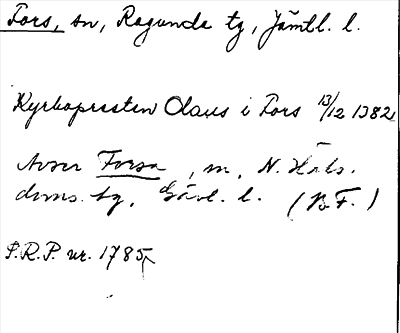 Fors, sn, Ragunda tg, Jämtl. l.
Kyrkopresten Olaus i Fors 13/12 1382
Avser Forsa, sn, N. Häls.
doms. tg, Gävl. l. (B. F.)
S.R.P. nr. 1785